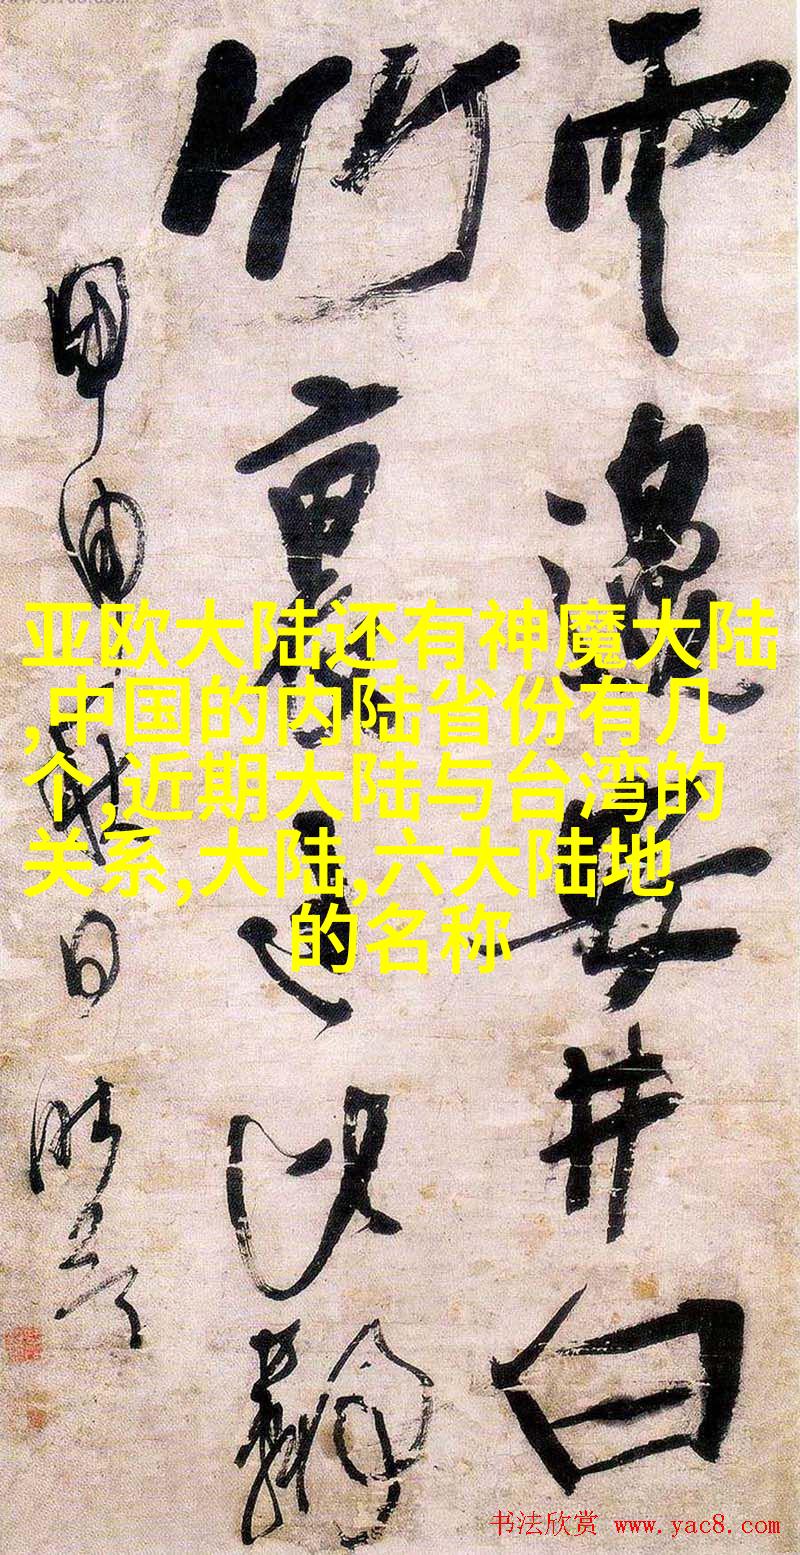 邊安井臼
竹裏
甲申秋日
亚欧大陆还有神魔大陆
,中国的内陆省份有几
个,近期大陆与台湾的
关系,大陆,六大陆地
的名称
书法欣赏 www.yac8.com